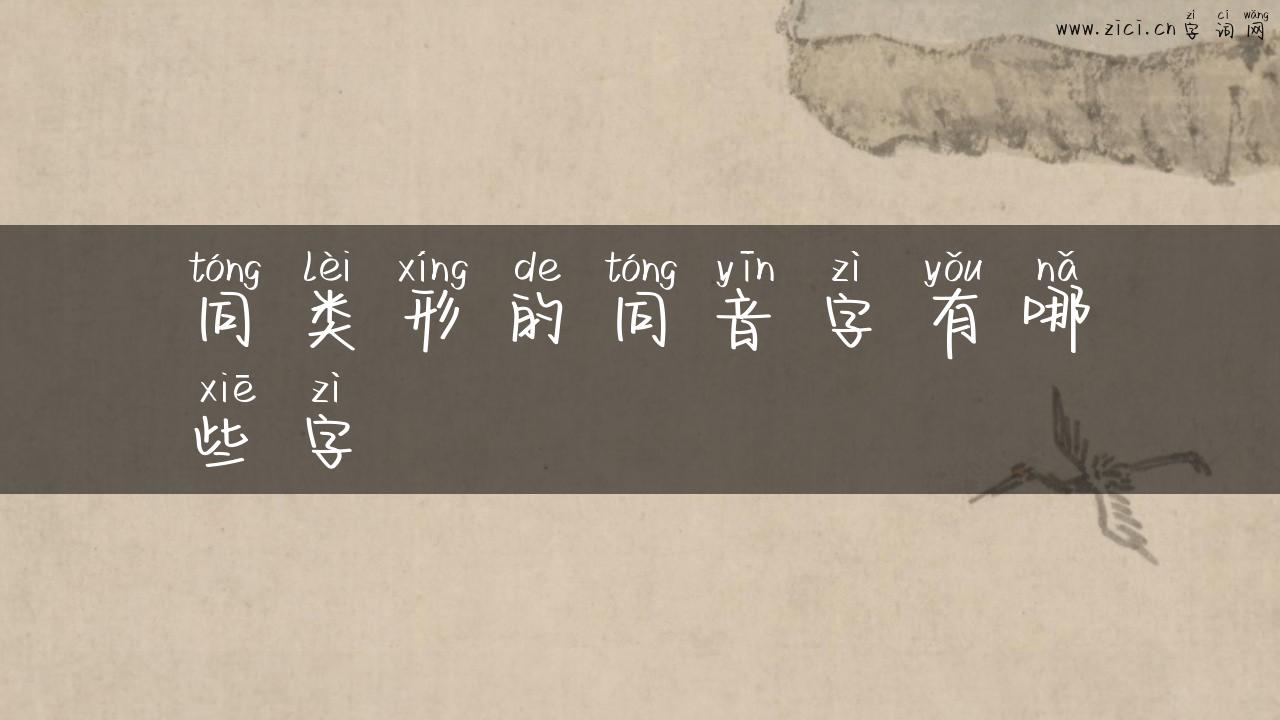 zì cí wǎng
www.zici.cn 字 词 网
tóng lèi xíng de tóng yīn zì yǒu nǎ
同 类 形 的 同 音 字 有 哪
xiē zì
些 字